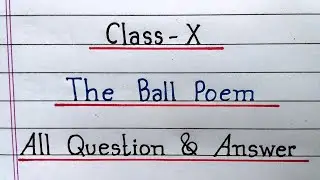 Class - X
The Ball Poem
All Question & Answer